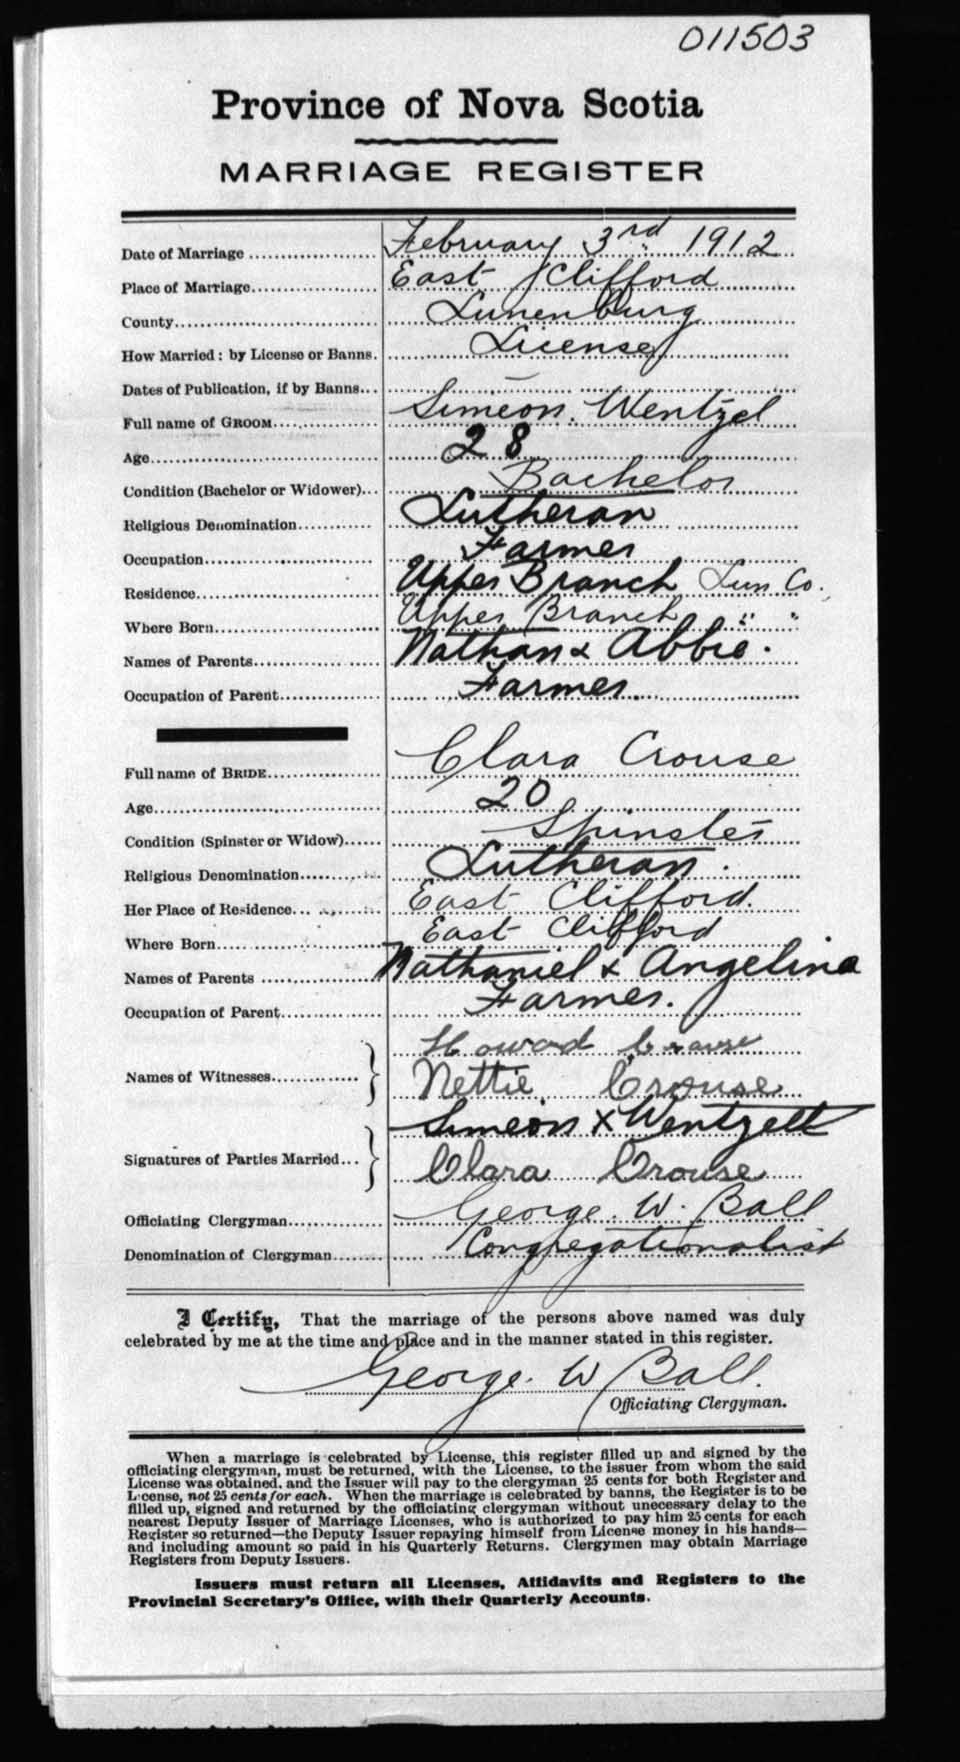 011503
Province of Nova Scotia
MARRIAGE REGISTER
Date of Marriage February 3rd 1912
Place of Marriage East Clifford
County Lunenburg
How Married: by License or Banns. License
Dates of Publication, if by Banns —
Full name of GROOM Simeon Wentzel
Age 28
Condition (Bachelor or Widower) Bachelor
Religious Denomination Lutheran
Occupation Farmer
Residence Upper Branch Lun Co.
Where Born Upper Branch " "
Names of Parents Nathan & Abbie.
Occupation of Parent Farmer.
Full name of BRIDE Clara Crouse
Age 20
Condition (Spinster or Widow) Spinster
Religious Denomination Lutheran.
Her Place of Residence East Clifford.
Where Born East Clifford
Names of Parents Nathaniel & Angelina
Occupation of Parent Farmer.
Howard Crouse
Names of Witnesses Nettie Crouse
Simeon X Wentzell
Signatures of Parties Married Clara Crouse
Officiating Clergyman George. W. Ball
Denomination of Clergyman Congregationalist
I Certify, That the marriage of the persons above named was duly
celebrated by me at the time and place and in the manner stated in this register.
George. W Ball.
Officiating Clergyman.
When a marriage is celebrated by License, this register filled up and signed by the
officiating clergyman, must be returned, with the License, to the issuer from whom the said
License was obtained, and the Issuer will pay to the clergyman 25 cents for both Register and
License, not 25 cents for each. When the marriage is celebrated by banns, the Register is to be
filled up, signed and returned by the officiating clergyman without unecessary delay to the
nearest Deputy Issuer of Marriage Licenses, who is authorized to pay him 25 cents for each
Register so returned—the Deputy Issuer repaying himself from License money in his hands—
and including amount so paid in his Quarterly Returns. Clergymen may obtain Marriage
Registers from Deputy Issuers.
Issuers must return all Licenses, Affidavits and Registers to the
Provincial Secretary's Office, with their Quarterly Accounts.